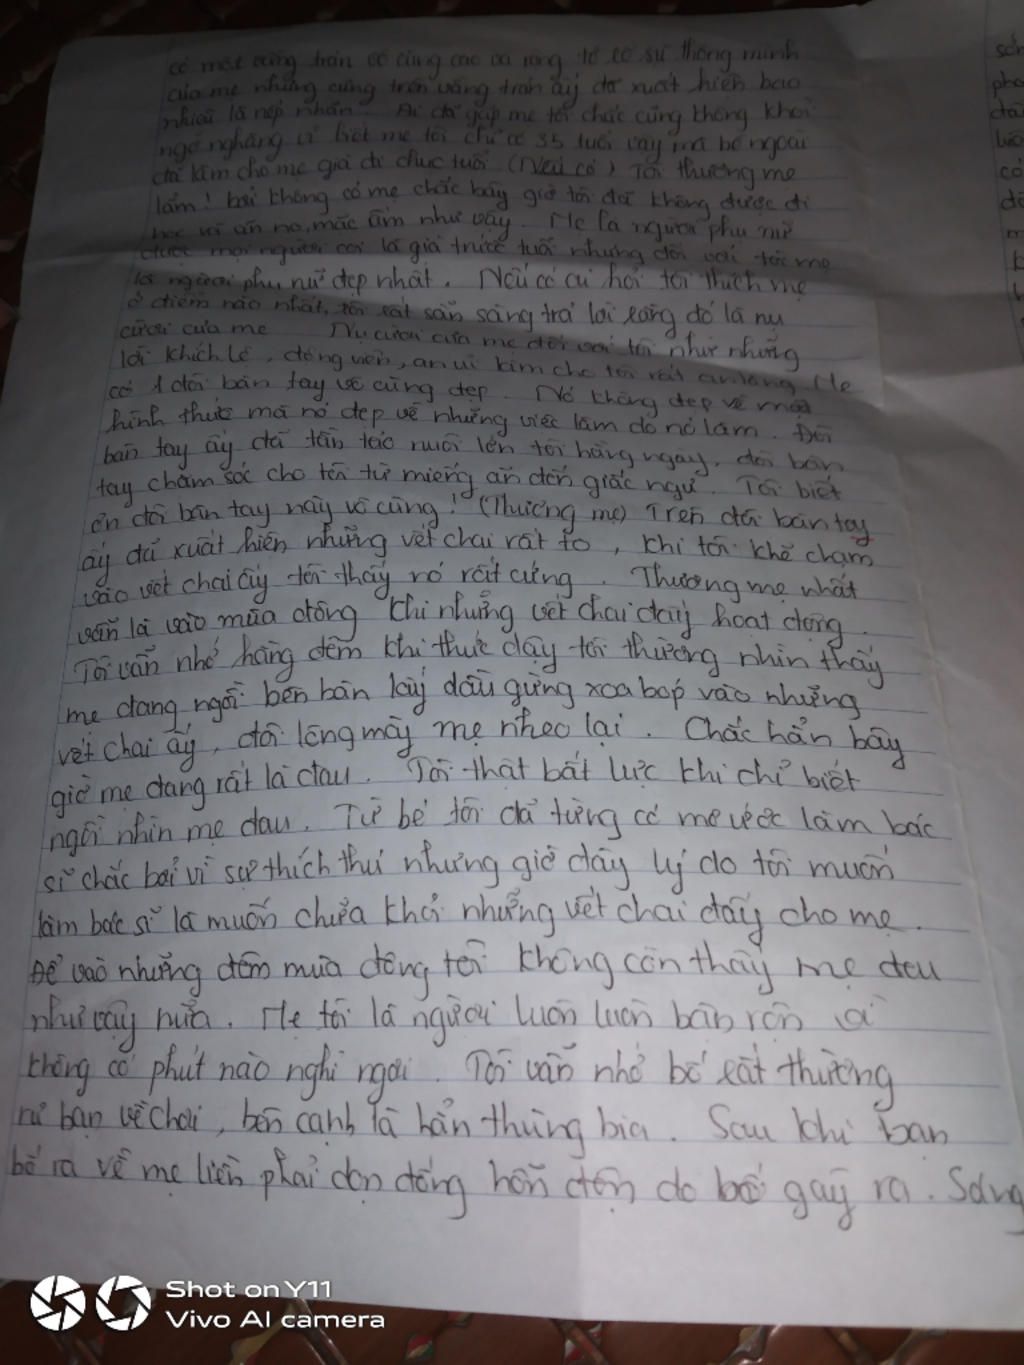 có một vầng trán vô cùng cao và rộng to có sự thông minh
của mẹ nhưng cũng trên vầng trán ấy đã xuất hiện bao
nhiêu là nếp nhăn. Ai đã gặp mẹ tôi chắc cũng không khỏi
ngỡ ngàng vì biết mẹ tôi chỉ có 35 tuổi vậy mà bề ngoài
đã làm cho mẹ già đi chục tuổi (Nếu có) Tôi thương mẹ
lắm! bởi không có mẹ chắc bây giờ tôi đã không được đi
học và ăn no, mặc ấm như vậy. Mẹ là người phụ nữ
được mọi người coi là già trước tuổi nhưng đối với tôi mẹ
là người phụ nữ đẹp nhất. Nếu có ai hỏi tôi thích mẹ
ở điểm nào nhất, tôi rất sẵn sàng trả lời rằng đó là nụ
cười của mẹ Nụ cười của mẹ đối với tôi như những
lời khích lệ, động viên, an ủi làm cho tôi rất an lòng. Mẹ
có 1 đôi bàn tay vô cùng đẹp. Nó không đẹp về mặt
hình thức mà nó đẹp về những việc làm do nó làm. Đôi
bàn tay ấy đã tần tảo nuôi lớn tôi hằng ngày, đôi bàn
tay chăm sóc cho tôi từ miếng ăn đến giấc ngủ. Tôi biết
ơn đôi bàn tay này vô cùng! (Thương mẹ) Trên đôi bàn tay
ấy đã xuất hiện những vết chai rất to, khi tôi khẽ chạm
vào vết chai ấy tôi thấy nó rất cứng. Thương mẹ nhất
vẫn là vào mùa đông khi những vết chai đấy hoạt động.
Tôi vẫn nhớ hằng đêm khi thức dậy tôi thường nhìn thấy
mẹ đang ngồi bên bàn lấy dầu gừng xoa bóp vào những
vết chai ấy, đôi lông mày mẹ nheo lại. Chắc hẳn bây
giờ mẹ đang rất là đau. Tôi thật bất lực khi chỉ biết
ngồi nhìn mẹ đau. Từ bé tôi đã từng có mơ ước làm bác
sĩ chắc bởi vì sự thích thú nhưng giờ đây lý do tôi muốn
làm bác sĩ là muốn chữa khỏi những vết chai đấy cho mẹ.
Để vào những đêm mùa đông tôi không còn thấy mẹ đau
như vậy nữa. Mẹ tôi là người luôn luôn bận rộn và
không có phút nào nghỉ ngơi. Tôi vẫn nhớ bố rất thường
rủ bạn về chơi, bên cạnh là hẳn thùng bia. Sau khi bạn
bố ra về mẹ liền phải dọn đống hỗn độn do bố gây ra. Sáng